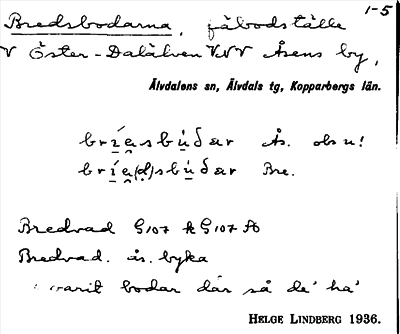 1-5
Bredsbodarna, fäbodställe
V Öster-Dalälven VNV Åsens by,
Älvdalens sn, Älvdals tg, Kopparbergs län.
Ås. obs u!
Bre.
Bredvad G107 & G107
Bredvad. ås. byka
varit bodar där så de' ha'
HELGE LINDBERG 1936.